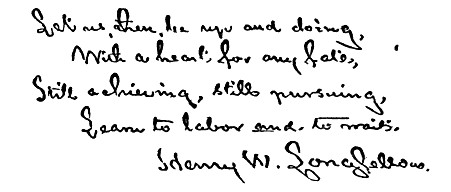 Let us, then, be up and doing,
With a heart for any fate,
Still achieving, still pursuing,
Learn to labor and to wait.
Henry W. Longfellow.